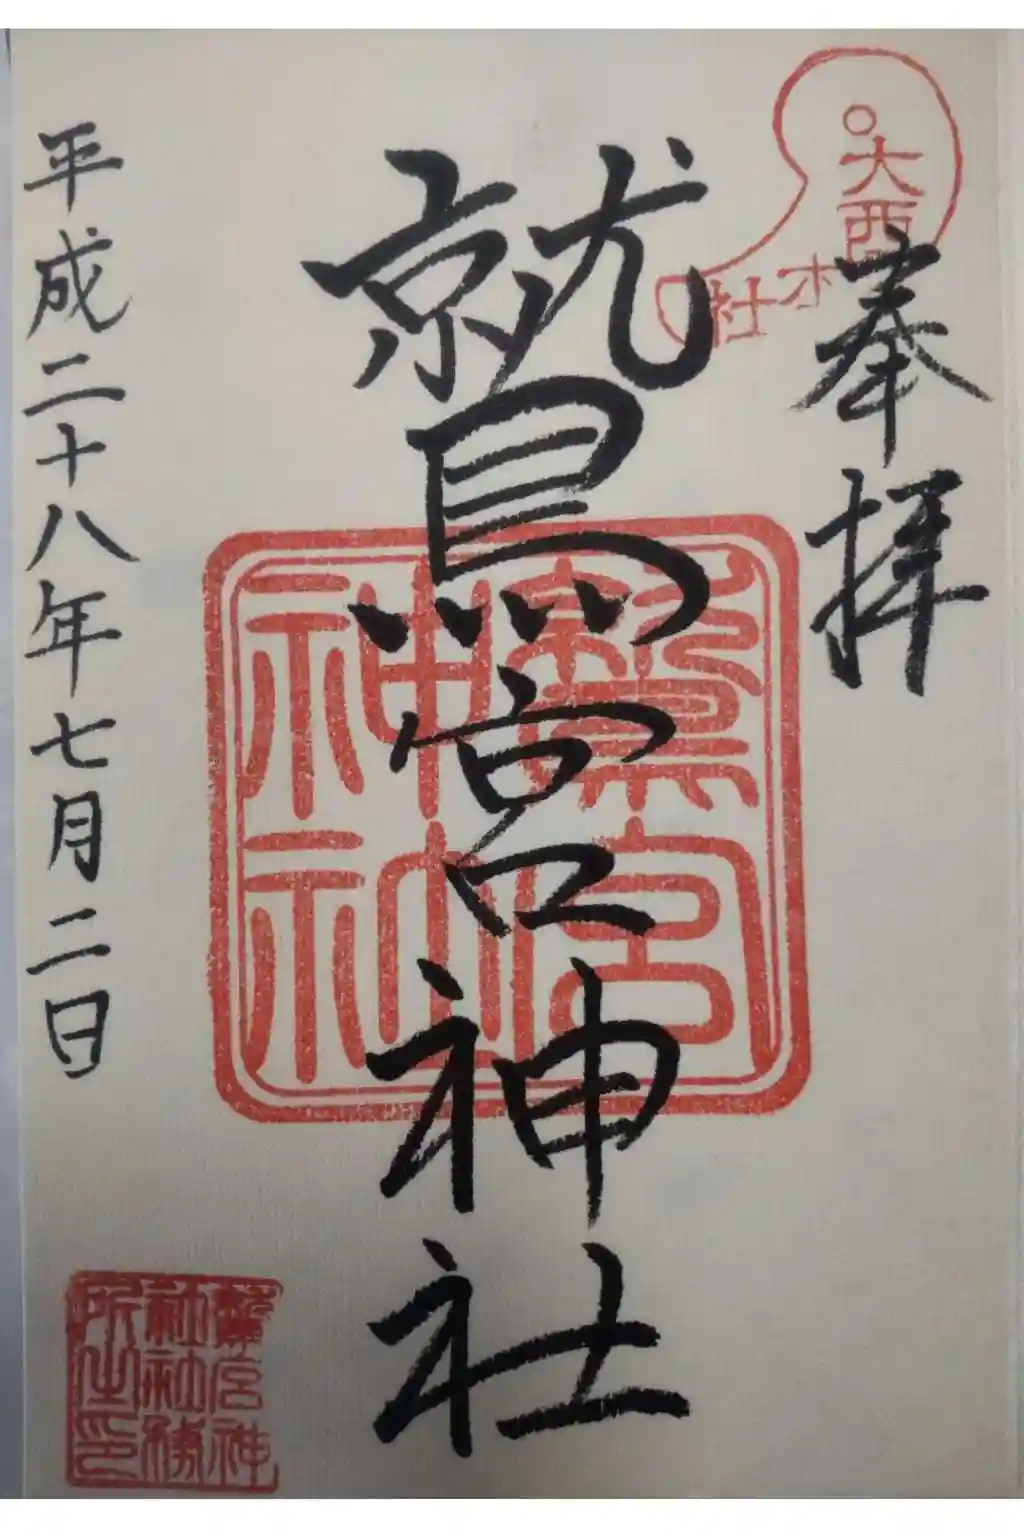 奉拝
鷲宮神社
平成二十八年七月二日
鷲宮神社
鷲宮神
社社務
所之印